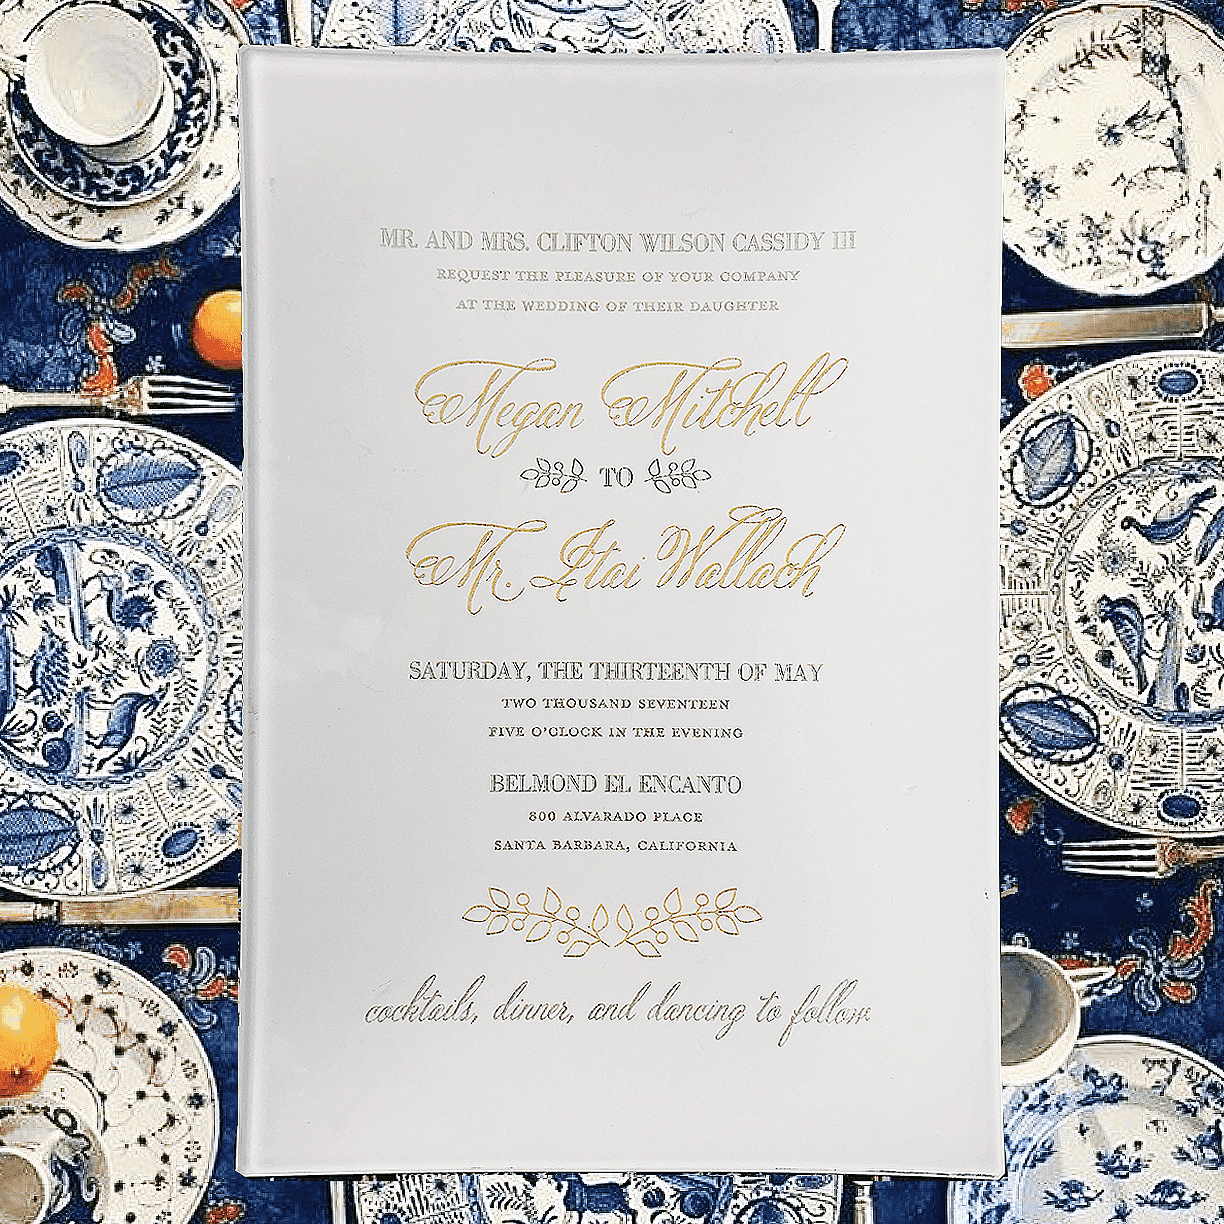 MR. AND MRS. CLIFTON WILSON CASSIDY III
REQUEST THE PLEASURE OF YOUR COMPANY
AT THE WEDDING OF THEIR DAUGHTER
Megan Mitchell
TO
Mr. Itai Wallach
SATURDAY, THE THIRTEENTH OF MAY
TWO THOUSAND SEVENTEEN
FIVE O'CLOCK IN THE EVENING
BELMOND EL ENCANTO
800 ALVARADO PLACE
SANTA BARBARA, CALIFORNIA
cocktails, dinner, and dancing to follow